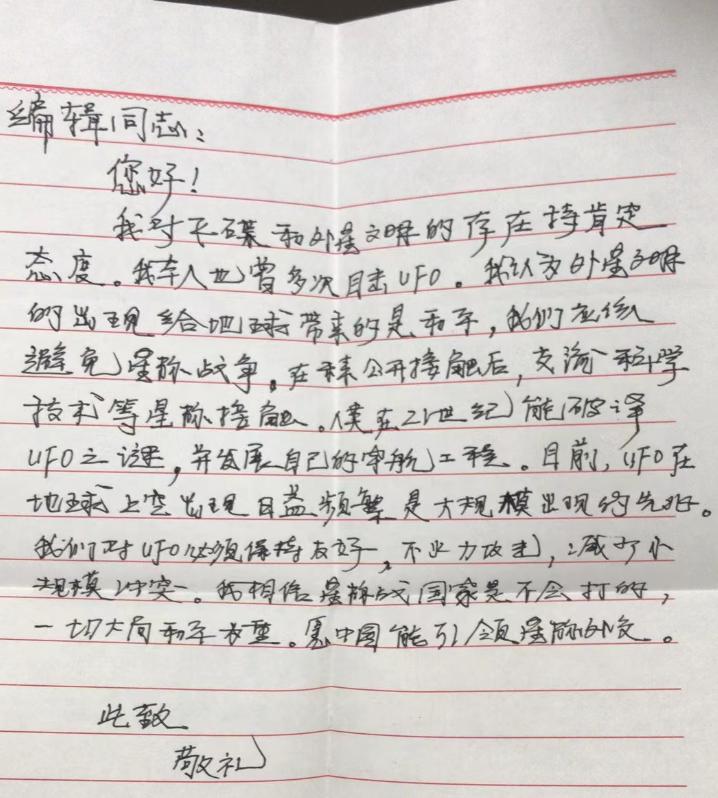 编辑同志:
您好!
我对飞碟和外星文明的存在持肯定
态度。我本人也曾多次目击UFO。我认为外星文明
的出现给地球带来的是和平,我们应该
避免星际战争。在未公开接触后,交流科学
技术等星际接触。使在21世纪能破译
UFO之谜,并发展自己的宇航工程。目前,UFO在
地球上空出现日益频繁是大规模出现的先兆。
我们对UFO必须保持友好,不火力攻击,减少小
规模冲突。我相信星际战国家是不会打的,
一切大局和平为重。愿中国能引领星际外交。
此致
敬礼